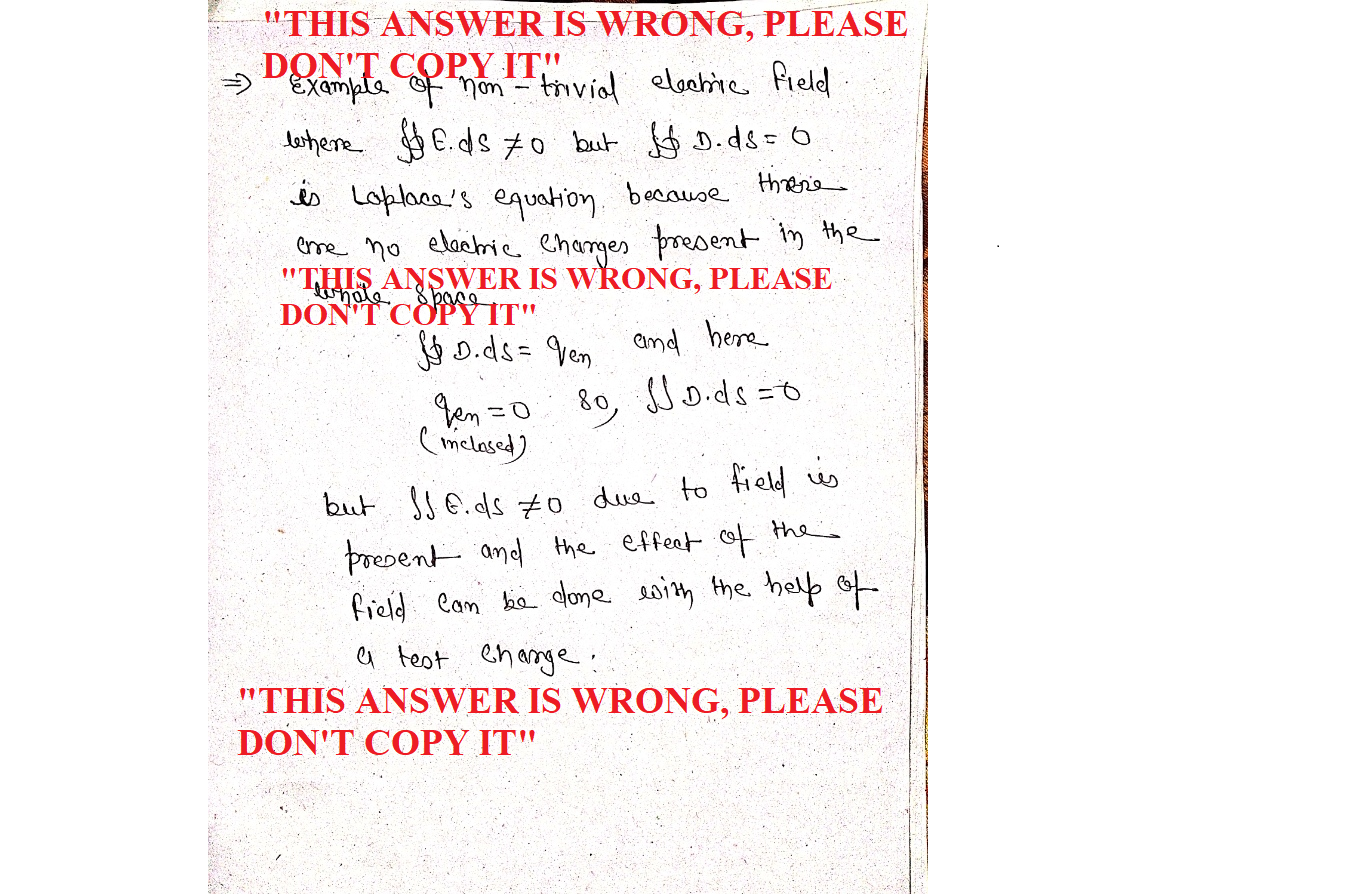 "THIS ANSWER IS WRONG, PLEASE
DON'T COPY IT"
⇒ Example of non-trivial electric field
where ∯ E.ds ≠ 0 but ∯ D.ds = 0
is Laplace's equation because there
are no electric charges present in the
"THIS ANSWER IS WRONG, PLEASE
whole space
DON'T COPY IT"
∯ D.ds = qen and here
qen = 0 so, ∬ D.ds = 0
(inclosed)
but ∬ E.ds ≠ 0 due to field is
present and the effect of the
field can be done with the help of
a test charge.
"THIS ANSWER IS WRONG, PLEASE
DON'T COPY IT"